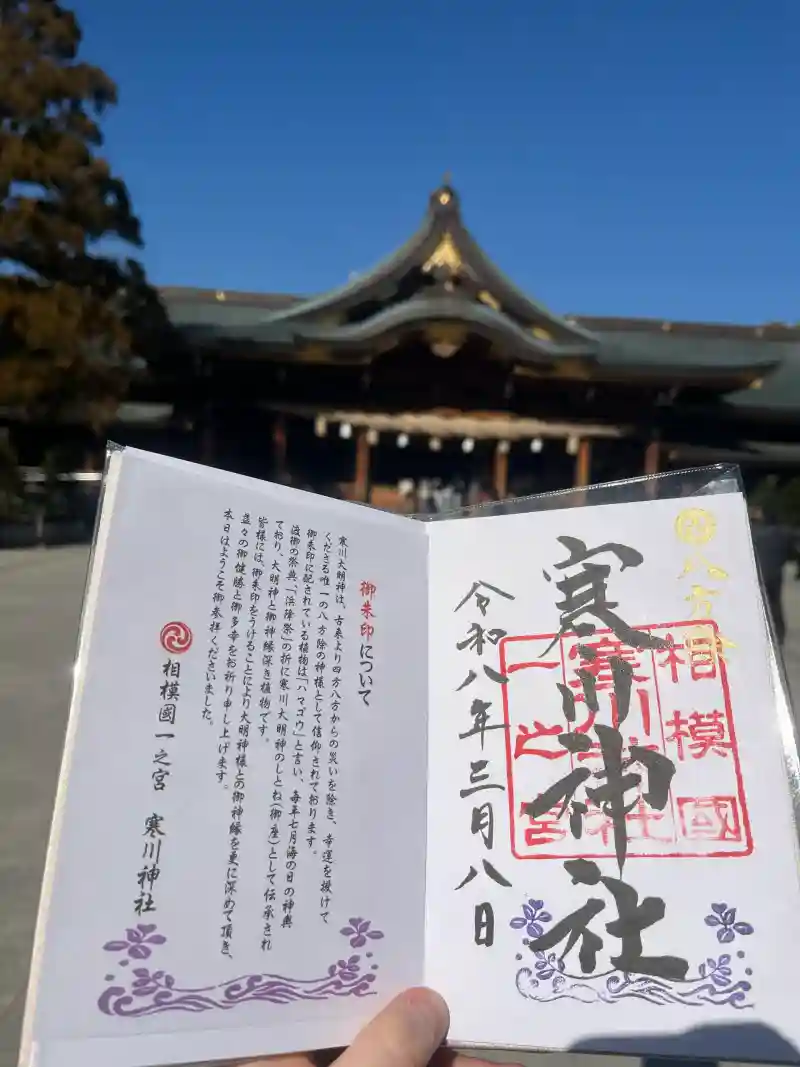 八方除
寒川神社
相模國
寒川神社
一之宮
令和八年三月八日
御朱印について
寒川大明神は、古来より四方八方からの災いを除き、幸運を授けて
くださる唯一の八方除の神様として信仰されております。
御朱印に配されている植物は「ハマゴウ」と言い、毎年七月海の日の神輿
渡御の祭典、「浜降祭」の折に寒川大明神のしとね(御座)として伝承され
ており、大明神と御神縁深き植物です。
皆様には、御朱印をうけることにより大明神様との御神縁を更に深めて頂き、
益々の御健勝と御多幸をお祈り申し上げます。
本日はようこそ御参拝くださいました。
相模國一之宮 寒川神社